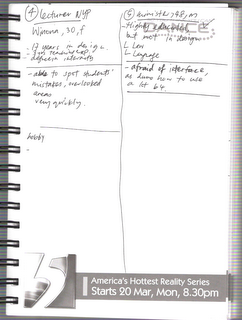 ④ lecturer NYP
Winona, 30, f
- years in design.
- 3 yrs teaching exp.
- different interests
- able to spot students'
mistakes, overlooked
areas
very quickly.
hobby
-
⑤ ministry 48, m
Highly educated
but not in design
L Law
L Language
- afraid of interface,
as dunno how to use
a lot b4
5
America's Hottest Reality Series
Starts 20 Mar, Mon, 8.30pm